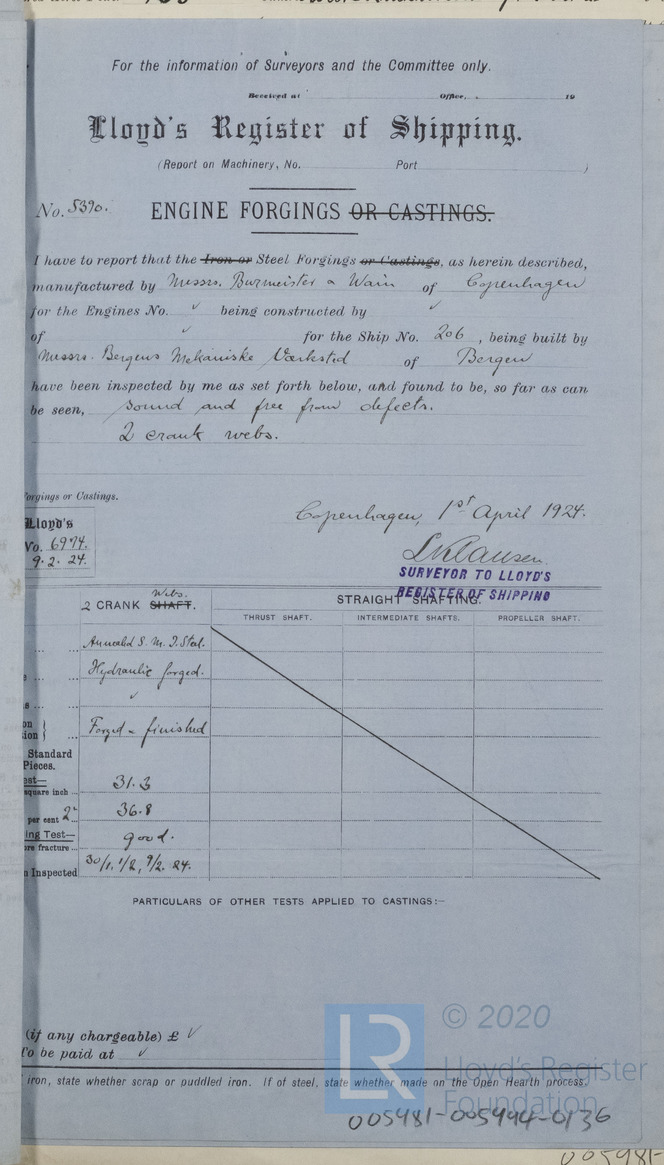 For the information of Surveyors and the Committee only.
Received at Office, 19
Lloyd's Register of Shipping.
(Report on Machinery, No. Port )
No. 5390.
ENGINE FORGINGS OR CASTINGS.
I have to report that the Iron or Steel Forgings or Castings, as herein described,
manufactured by Messrs. Burmeister & Wain of Copenhagen
for the Engines No. ✓ being constructed by ✓
of ✓ for the Ship No. 206, being built by
Messrs. Bergens Mekaniske Værksted of Bergen
have been inspected by me as set forth below, and found to be, so far as can
be seen, sound and free from defects.
2 crank webs.
Forgings or Castings.
Copenhagen, 1st April 1924.
Lloyd's
No. 6974.
9.2.24.
SURVEYOR TO LLOYD'S
REGISTER OF SHIPPING
2 CRANK SHAFT. Webs.
STRAIGHT SHAFTING.
THRUST SHAFT. INTERMEDIATE SHAFTS. PROPELLER SHAFT.
Anneald S. M. I. Steel.
Hydraulic forged.
✓
Forged & finished
Standard
Pieces.
31.3
square inch ...
per cent 2" ... 36.8
ing Test— good.
ore fracture ...
Inspected 30/1, 1/2, 9/2. 24.
PARTICULARS OF OTHER TESTS APPLIED TO CASTINGS:–
(if any chargeable) £ ✓
To be paid at ✓
iron, state whether scrap or puddled iron. If of steel, state whether made on the Open Hearth process.
© 2020
LR
Lloyd's Register
Foundation
005981-005994-0136
005981-